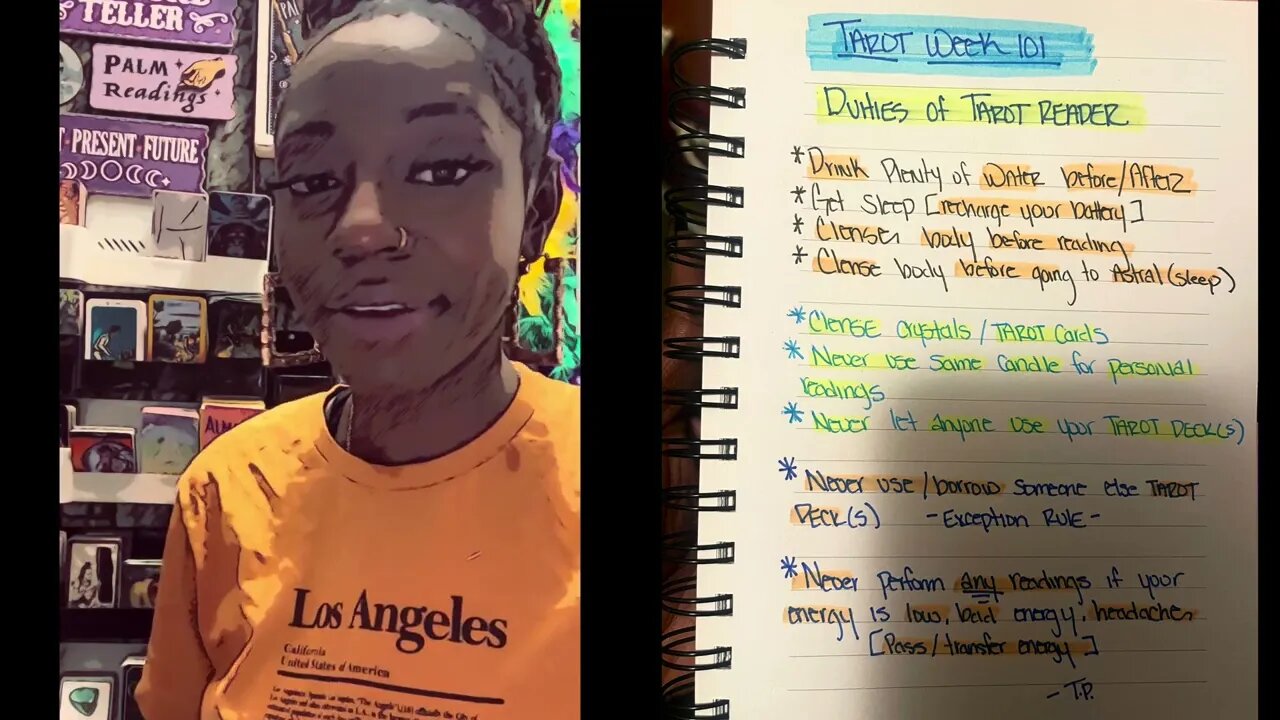 TELLER
PALM
Readings
T PRESENT FUTURE
ALM
Los Angeles
California
United States of America
TAROT WEEK 101
DUTIES OF TAROT READER
* Drink Plenty of Water before/After
* Get Sleep [recharge your battery]
* Clense body before reading
* Clense body before going to Astral (sleep)
* Clense crystals / TAROT Cards
* Never use same candle for personal
readings
* Never let anyone use your TAROT DECK(S)
* Never use / borrow someone else TAROT
DECK(S) - Exception Rule -
* Never perform any readings if your
energy is low, bad energy, headache,
[Pass/transfer energy]
- T.P.